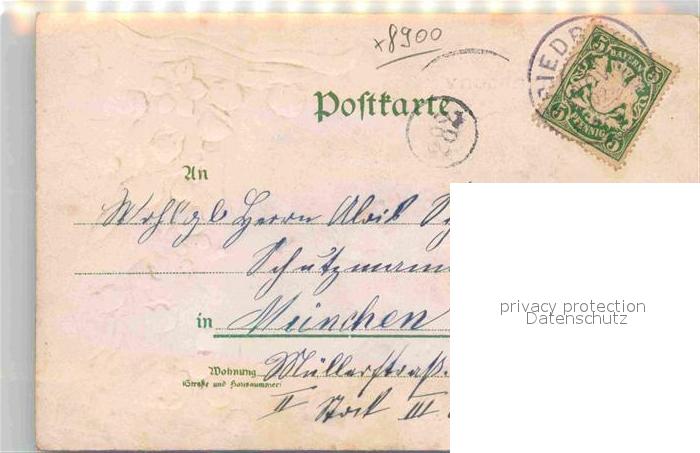 x8900
BAYERN
5 5
5 5
PFENNIG
Postkarte
An
Wohlgb Herrn Alois
Schutzmann
in München
Wohnung Müllerstraß.
(Straße und Hausnummer)
II Stock III
privacy protection
Datenschutz